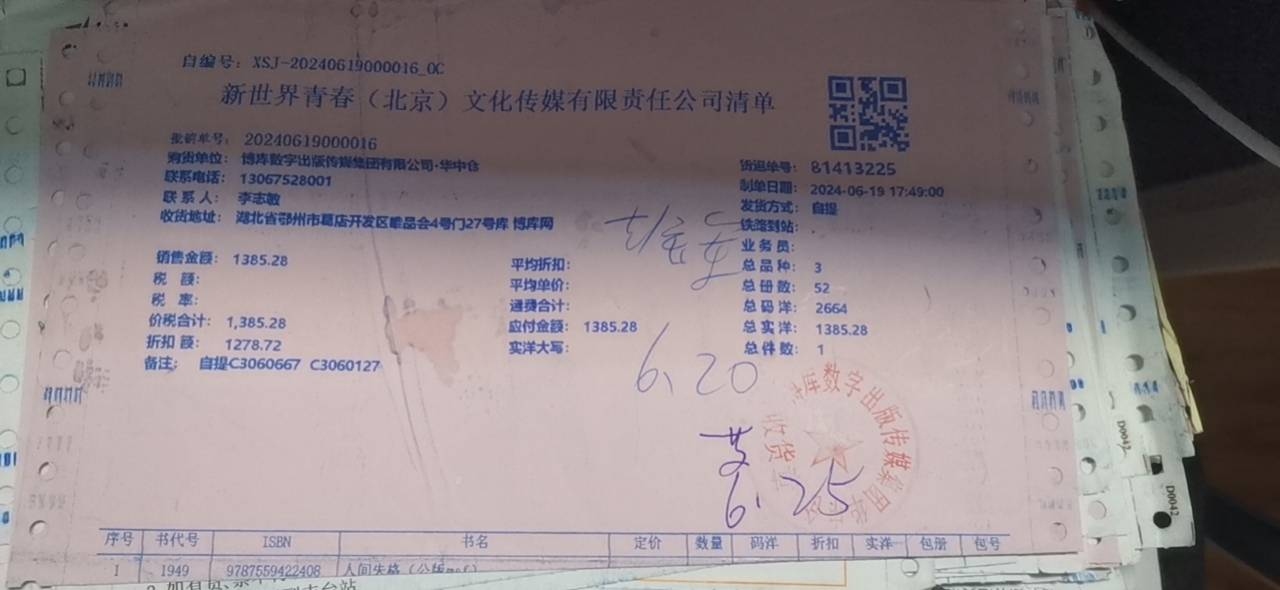 自编号：XSJ-20240619000016_0C
新世界青春（北京）文化传媒有限责任公司清单
批销单号：20240619000016
购货单位：博库数字出版传媒集团有限公司·华中仓
联系电话：13067528001
联系人：李志敏
收货地址：湖北省鄂州市葛店开发区唯品会4号门27号库 博库网
货运单号：81413225
制单日期：2024-06-19 17:49:00
发货方式：自提
铁路到站：
业务员：
销售金额：1385.28
税 额：
税 率：
价税合计：1,385.28
折扣 额：1278.72
备注： 自提C3060667 C3060127
平均折扣：
平均单价：
通费合计：
应付金额：1385.28
实洋大写：
总品种：3
总册数：52
总码洋：2664
总实洋：1385.28
总件数：1
6.20
库数字出版传媒集团
收货
6.25
序号 书代号 ISBN 书名 定价 数量 码洋 折扣 实洋 包册 包号
1 1949 9787559422408 人间失格（公版
D0042
D0042